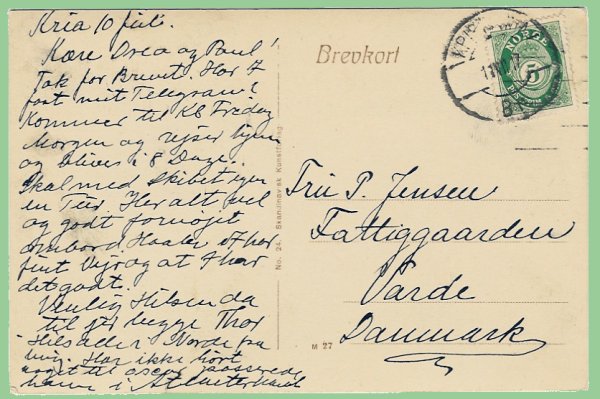 Kria 10 juli.
Kære Orea og Poul!
Tak for Brevet. Har I
faat mit Telegram?
Kommer til KB Fredag
Morgen og rejser hjem
og bliver i 8 Dage.
Skal med Skibet igen
en Tur. Her alt vel
og godt fornøjet
ombord. Haaber I har
fint Vejr og at I har
det godt.
Venlig Hilsen da
til jer begge Thor
Hils alle i Varde fra
mig. Har ikke hørt
noget til
Brevkort
NORGE
5
No. 24. Skandinavisk Kunstforlag
M 27
Fru P. Jensen
Fattiggaarden
Varde
Danmark